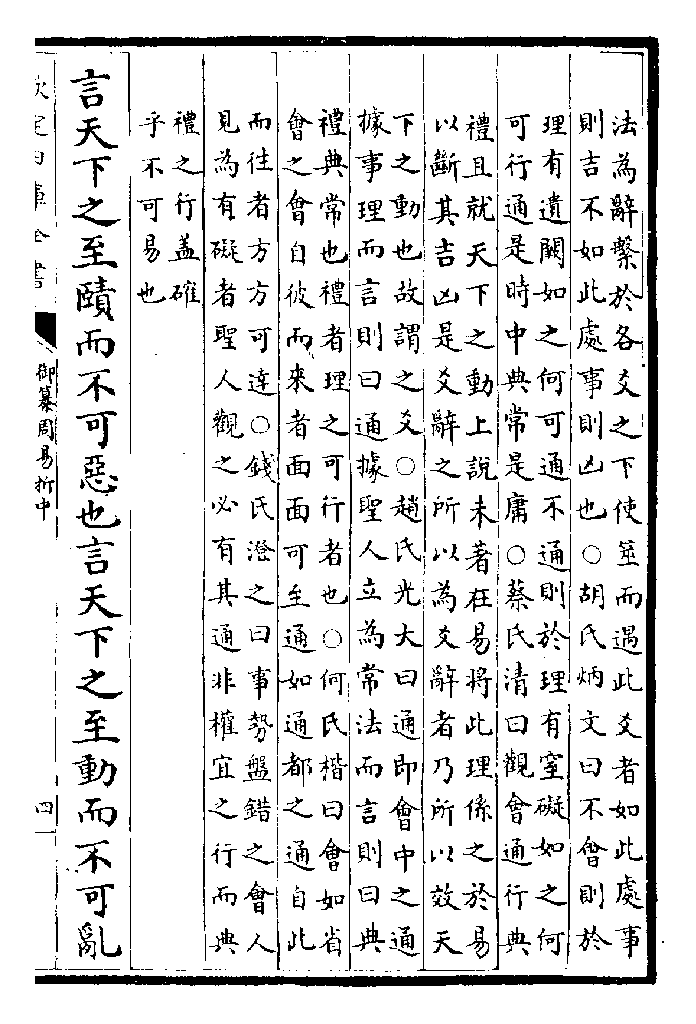 法為辭繫於各爻之下使筮而遇此爻者如此處事
則吉不如此處事則凶也○胡氏炳文曰不㑹則於
理有遺闕如之何可通不通則於理有窒礙如之何
可行通是時中典常是庸○蔡氏清曰觀㑹通行典
禮且就天下之動上說未著在易將此理係之於易
以斷其吉凶是爻辭之所以為爻辭者乃所以效天
下之動也故謂之爻○趙氏光大曰通即㑹中之通
據事理而言則曰通據聖人立為常法而言則曰典
禮典常也禮者理之可行者也○何氏楷曰㑹如省
㑹之㑹自彼而來者面面可至通如通都之通自此
而往者方方可達○錢氏澄之曰事勢盤錯之㑹人
見為有礙者聖人觀之必有其通非權宜之行而典
禮之行蓋確
乎不可易也
言天下之至賾而不可惡也言天下之至動而不可亂
欽定四庫全書
御纂周易折中
四